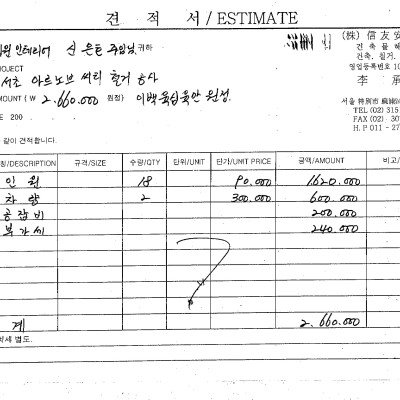 견 적 서 / ESTIMATE
인테리어 신은트 주임님 귀하
(株) 信友安
건축물해
건축, 철거,
영업등록번호 10
李 承
PROJECT
서초 아르노브 씨티 철거 공사
AMOUNT (₩ 2,660,000 원정) 이백육십육만 원정.
서울 特別市
TEL (02) 315
FAX (02) 30
H.P 011-27
E 200 . . .
같이 견적합니다.
칭/DESCRIPTION 규격/SIZE 수량/QTY 단위/UNIT 단가/UNIT PRICE 금액/AMOUNT 비고/
인 원 18 90.000 1.620.000
차 량 2 300.000 600.000
공잡비 200.000
부가세 240.000
계 2.660.000
세 별도.